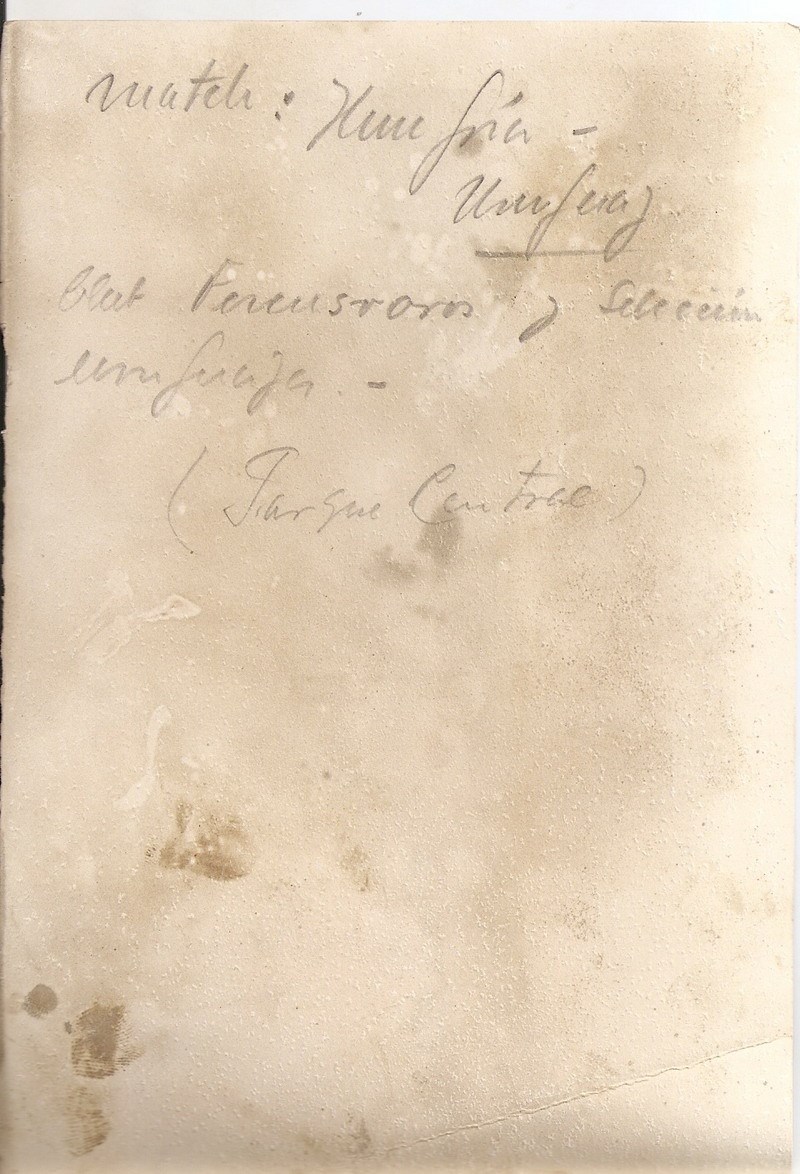 match: Hungría -
Uruguay
Club Ferencsvaros y Selección
uruguaya. -
(Parque Central)